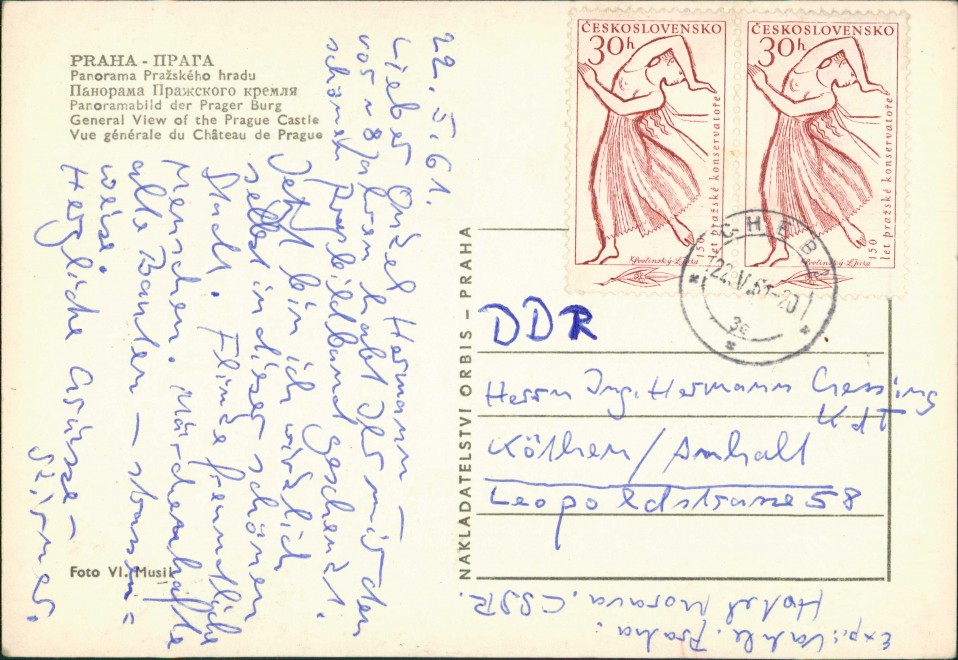 PRAHA - ПРАГА
Panorama Pražského hradu
Панорама Пражского кремля
Panoramabild der Prager Burg
General View of the Prague Castle
Vue générale du Château de Prague
22. 5. 61.
Lieber Onkel Hermann –
vor 8 Jahren habt Ihr mir den
schönen Prag-bildband geschenkt.
Jetzt bin ich wirklich
selbst in dieser schönen
Stadt. Flinke freundliche
Menschen. Märchenhafte
alte Bauten –
Herzliche Grüsse –
Foto Vl. Musil
NAKLADATELSTVÍ ORBIS – PRAHA
ČESKOSLOVENSKO
30h
150 let pražské konservatoře
ČESKOSLOVENSKO
30h
150 let pražské konservatoře
CHEB
22.V.61-20
3e
DDR
Herrn Ing. Hermann Gessing
KdT
Köthen / Anhalt
Leopoldstrasse 58
Praha.
Hotel Morava. ČSSR.